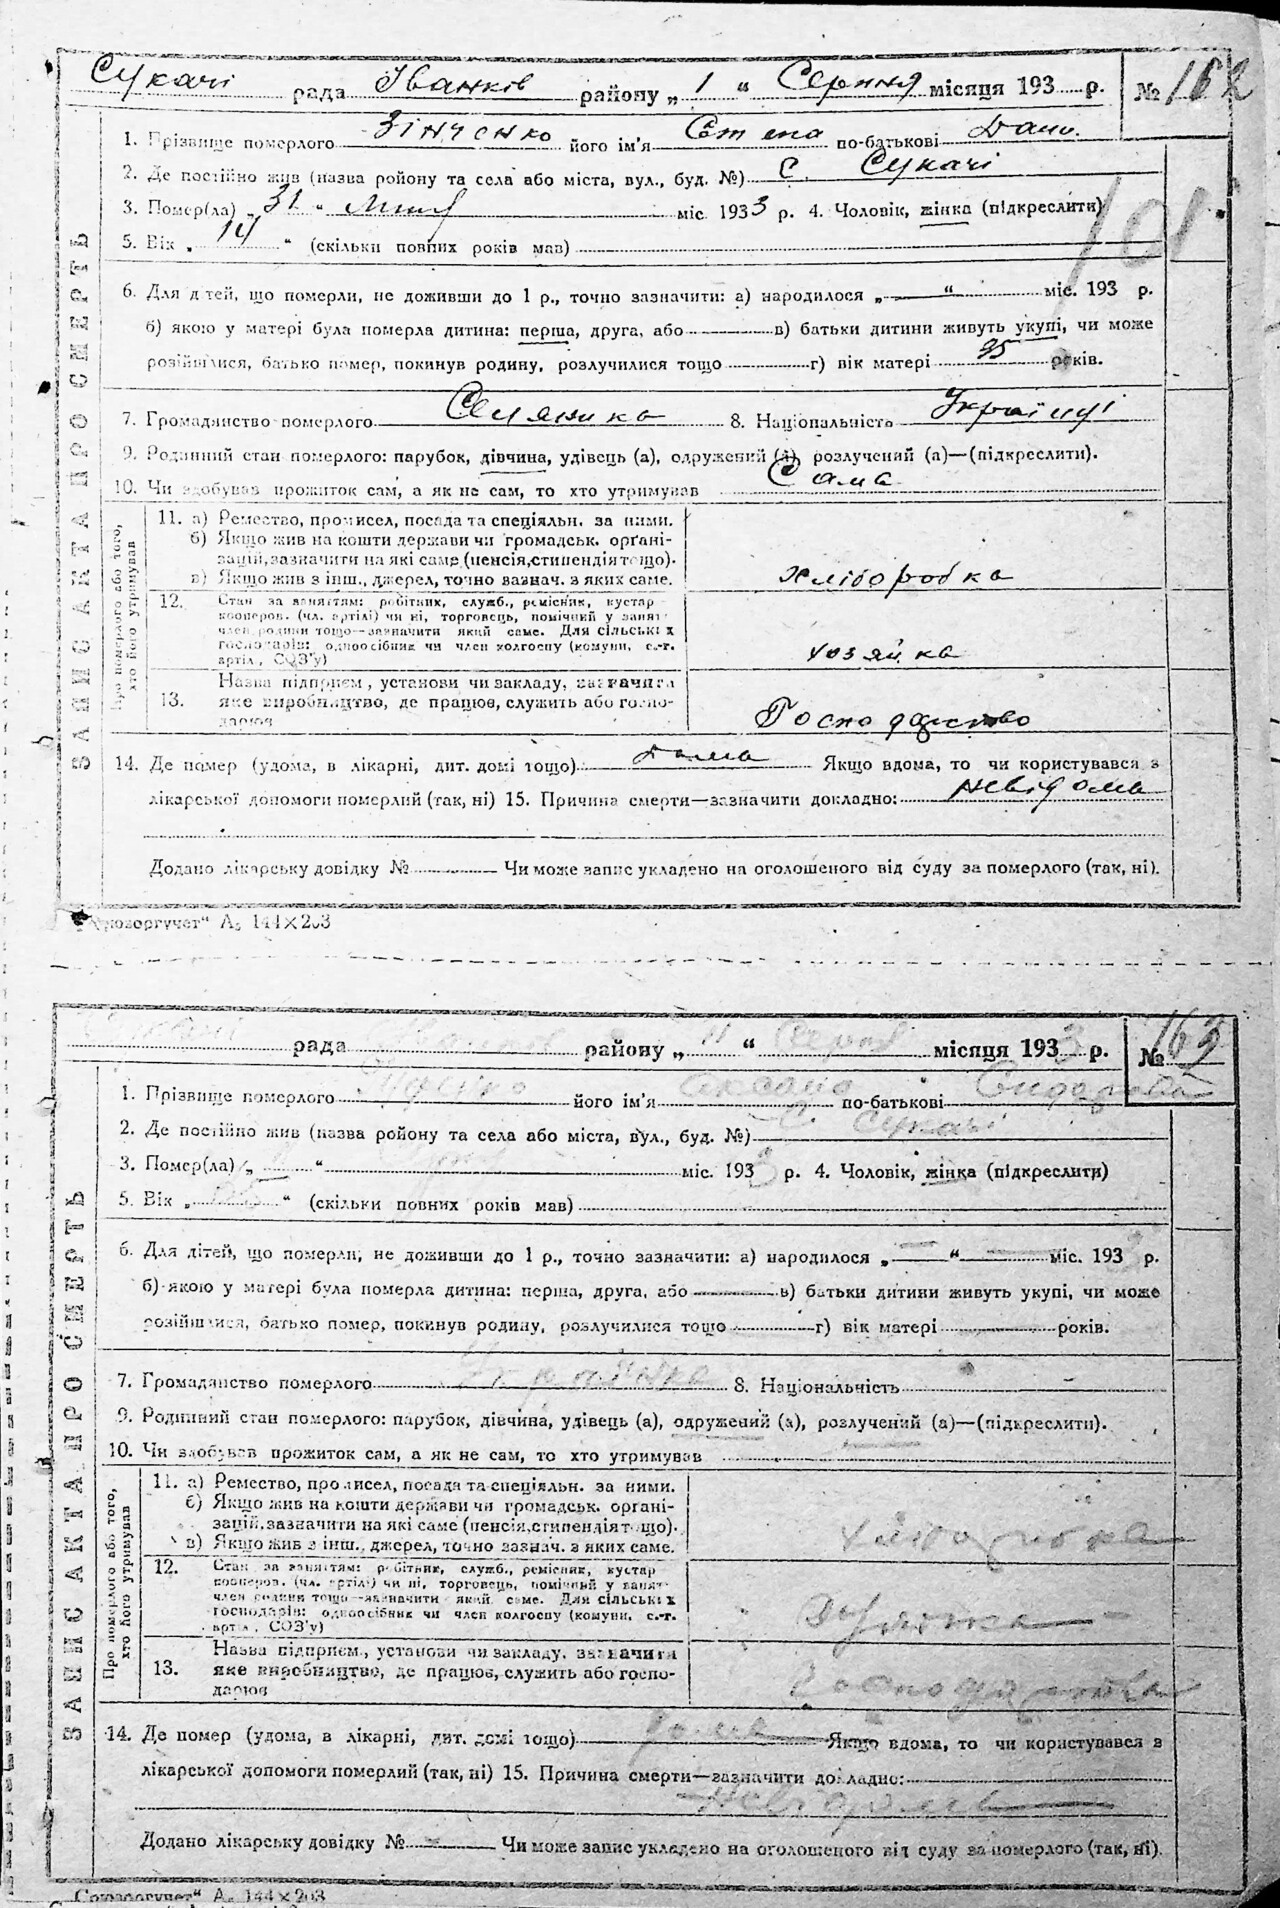 Сукачі рада Іванків району „ 1 “ Серпня місяця 193 р. № 162
1. Прізвище померлого Зінченко його ім'я Степа по-батькові Дани.
2. Де постійно жив (назва ройону та села або міста, вул., буд. №) С. Сукачі
3. Помер(ла) „ 31 “ міс. 1933 р. 4. Чоловік, жінка (підкреслити)
5. Вік „ 14 “ (скільки повних років мав)
101
6. Для дітей, що померли, не доживши до 1 р., точно зазначити: а) народилося „ — “ міс. 193 р.
б) якою у матері була померла дитина: перша, друга, або в) батьки дитини живуть укупі, чи може
розійшлися, батько помер, покинув родину, розлучилися тощо г) вік матері 35 років.
7. Громадянство померлого Селянка 8. Національність Українці
9. Родинний стан померлого: парубок, дівчина, удівець (а), одружений (а), розлучений (а)—(підкреслити).
10. Чи здобував прожиток сам, а як не сам, то хто утримував Сама
ЗАПИС АКТА ПРО СМЕРТЬ
Про померлого або того, хто його утримував
11. а) Ремество, промисел, посада та спеціяльн. за ними.
б) Якщо жив на кошти держави чи громадськ. орґані-
зацій, зазначити на які саме (пенсія, стипендія тощо).
в) Якщо жив з інш., джерел, точно зазнач. з яких саме.
хліборобка
12. Стан за заняттям: робітник, служб., ремісник, кустар
кооперов. (чл. артілі) чи ні, торговець, помічний у занят.
член родини тощо—зазначити який саме. Для сільських
господарів: одноосібник чи член колгоспу (комуни, с.-г.
артіл., СОЗ'у)
хозяйка
13. Назва підприєм., установи чи закладу, зазначити
яке виробництво, де працює, служить або госпо-
дарює
Господарство
14. Де помер (удома, в лікарні, дит. домі тощо) дома Якщо вдома, то чи користувався з
лікарської допомоги померлий (так, ні) 15. Причина смерти—зазначити докладно: невідома
Додано лікарську довідку № Чи може запис укладено на оголошеного від суду за померлого (так, ні).
„Союзоргучет“ А₅ 144×203
Сукачі рада Іванків району „ “ Серпня місяця 1933 р. № 163
1. Прізвище померлого його ім'я Оксана по-батькові
2. Де постійно жив (назва ройону та села або міста, вул., буд. №) С. Сукачі
3. Помер(ла) „ “ міс. 1933 р. 4. Чоловік, жінка (підкреслити)
5. Вік „ “ (скільки повних років мав)
6. Для дітей, що померли, не доживши до 1 р., точно зазначити: а) народилося „ — “ міс. 193 р.
б) якою у матері була померла дитина: перша, друга, або в) батьки дитини живуть укупі, чи може
розійшлися, батько помер, покинув родину, розлучилися тощо г) вік матері років.
7. Громадянство померлого 8. Національність
9. Родинний стан померлого: парубок, дівчина, удівець (а), одружений (а), розлучений (а)—(підкреслити).
10. Чи здобував прожиток сам, а як не сам, то хто утримував
ЗАПИС АКТА ПРО СМЕРТЬ
Про померлого або того, хто його утримував
11. а) Ремество, промисел, посада та спеціяльн. за ними.
б) Якщо жив на кошти держави чи громадськ. орґані-
зацій, зазначити на які саме (пенсія, стипендія тощо).
в) Якщо жив з інш., джерел, точно зазнач. з яких саме.
хліборобка
12. Стан за заняттям: робітник, служб., ремісник, кустар
кооперов. (чл. артілі) чи ні, торговець, помічний у занят.
член родини тощо—зазначити який саме. Для сільських
господарів: одноосібник чи член колгоспу (комуни, с.-г.
артіл., СОЗ'у)
13. Назва підприєм., установи чи закладу, зазначити
яке виробництво, де працює, служить або госпо-
дарює
14. Де помер (удома, в лікарні, дит. домі тощо) дома Якщо вдома, то чи користувався з
лікарської допомоги померлий (так, ні) 15. Причина смерти—зазначити докладно:
Невідома
Додано лікарську довідку № Чи може запис укладено на оголошеного від суду за померлого (так, ні).
„Союзоргучет“ А₅ 144×203